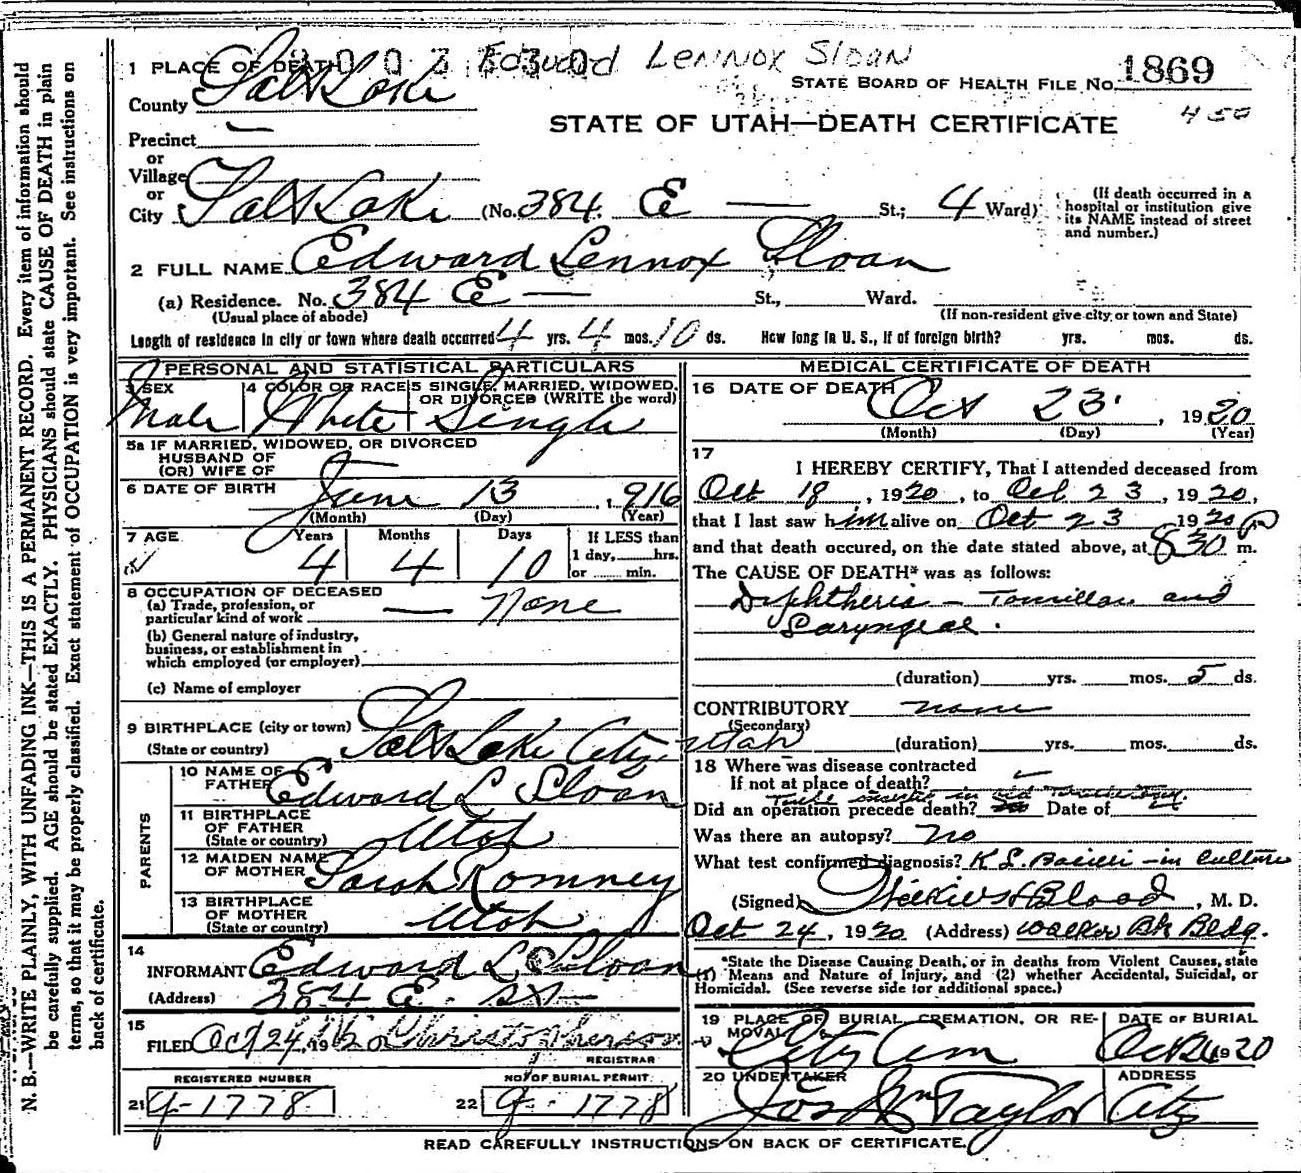 Edward Lennox Sloan
1 PLACE OF DEATH
STATE BOARD OF HEALTH FILE No. 1869
County Salt Lake
450
STATE OF UTAH—DEATH CERTIFICATE
Precinct —
or
Village
or
City Salt Lake (No. 384 E — St.; 4 Ward)
(If death occurred in a hospital or institution give its NAME instead of street and number.)
2 FULL NAME Edward Lennox Sloan
(a) Residence. No. 384 E — St., Ward.
(Usual place of abode) (If non-resident give city or town and State)
Length of residence in city or town where death occurred 4 yrs. 4 mos. 10 ds. How long in U. S., if of foreign birth? yrs. mos. ds.
PERSONAL AND STATISTICAL PARTICULARS
3 SEX Male
4 COLOR OR RACE White
5 SINGLE, MARRIED, WIDOWED, OR DIVORCED (WRITE the word) Single
5a IF MARRIED, WIDOWED, OR DIVORCED
HUSBAND OF
(OR) WIFE OF
6 DATE OF BIRTH June 13, 1916
(Month) (Day) (Year)
7 AGE Years Months Days If LESS than
4 4 10 1 day, hrs.
or min.
8 OCCUPATION OF DECEASED
(a) Trade, profession, or
particular kind of work — None
(b) General nature of industry,
business, or establishment in
which employed (or employer)
(c) Name of employer
9 BIRTHPLACE (city or town)
(State or country) Salt Lake City, Utah
PARENTS
10 NAME OF FATHER Edward L Sloan
11 BIRTHPLACE OF FATHER (State or country) Utah
12 MAIDEN NAME OF MOTHER Sarah Romney
13 BIRTHPLACE OF MOTHER (State or country) Utah
14
INFORMANT Edward L Sloan
(Address) 384 E. St—
15
FILED Oct 24, 1920 Christopherson
REGISTRAR
REGISTERED NUMBER NO. OF BURIAL PERMIT
21 9-1778 22 9-1778
MEDICAL CERTIFICATE OF DEATH
16 DATE OF DEATH Oct 23, 1920
(Month) (Day) (Year)
17
I HEREBY CERTIFY, That I attended deceased from
Oct 18, 1920, to Oct. 23, 1920,
that I last saw him alive on Oct 23 1920
and that death occured, on the date stated above, at 830 P m.
The CAUSE OF DEATH* was as follows:
Diphtheria — Tonsillar and
Laryngeal.
(duration) yrs. mos. 5 ds.
CONTRIBUTORY none
(Secondary)
(duration) yrs. mos. ds.
18 Where was disease contracted
If not at place of death?
Did an operation precede death? Date of
Was there an autopsy? No
What test confirmed diagnosis? K. L. Bacilli — in culture
(Signed) Blood, M. D.
Oct 24, 1920 (Address) Walker Bk Bldg.
*State the Disease Causing Death, or in deaths from Violent Causes, state
(1) Means and Nature of Injury, and (2) whether Accidental, Suicidal, or
Homicidal. (See reverse side for additional space.)
19 PLACE OF BURIAL, CREMATION, OR REMOVAL City Cem
DATE OF BURIAL Oct 24 1920
20 UNDERTAKER Jos Wm Taylor
ADDRESS City
READ CAREFULLY INSTRUCTIONS ON BACK OF CERTIFICATE.
N. B.—WRITE PLAINLY, WITH UNFADING INK—THIS IS A PERMANENT RECORD. Every item of information should
be carefully supplied. AGE should be stated EXACTLY. PHYSICIANS should state CAUSE OF DEATH in plain
terms, so that it may be properly classified. Exact statement of OCCUPATION is very important. See instructions on
back of certificate.